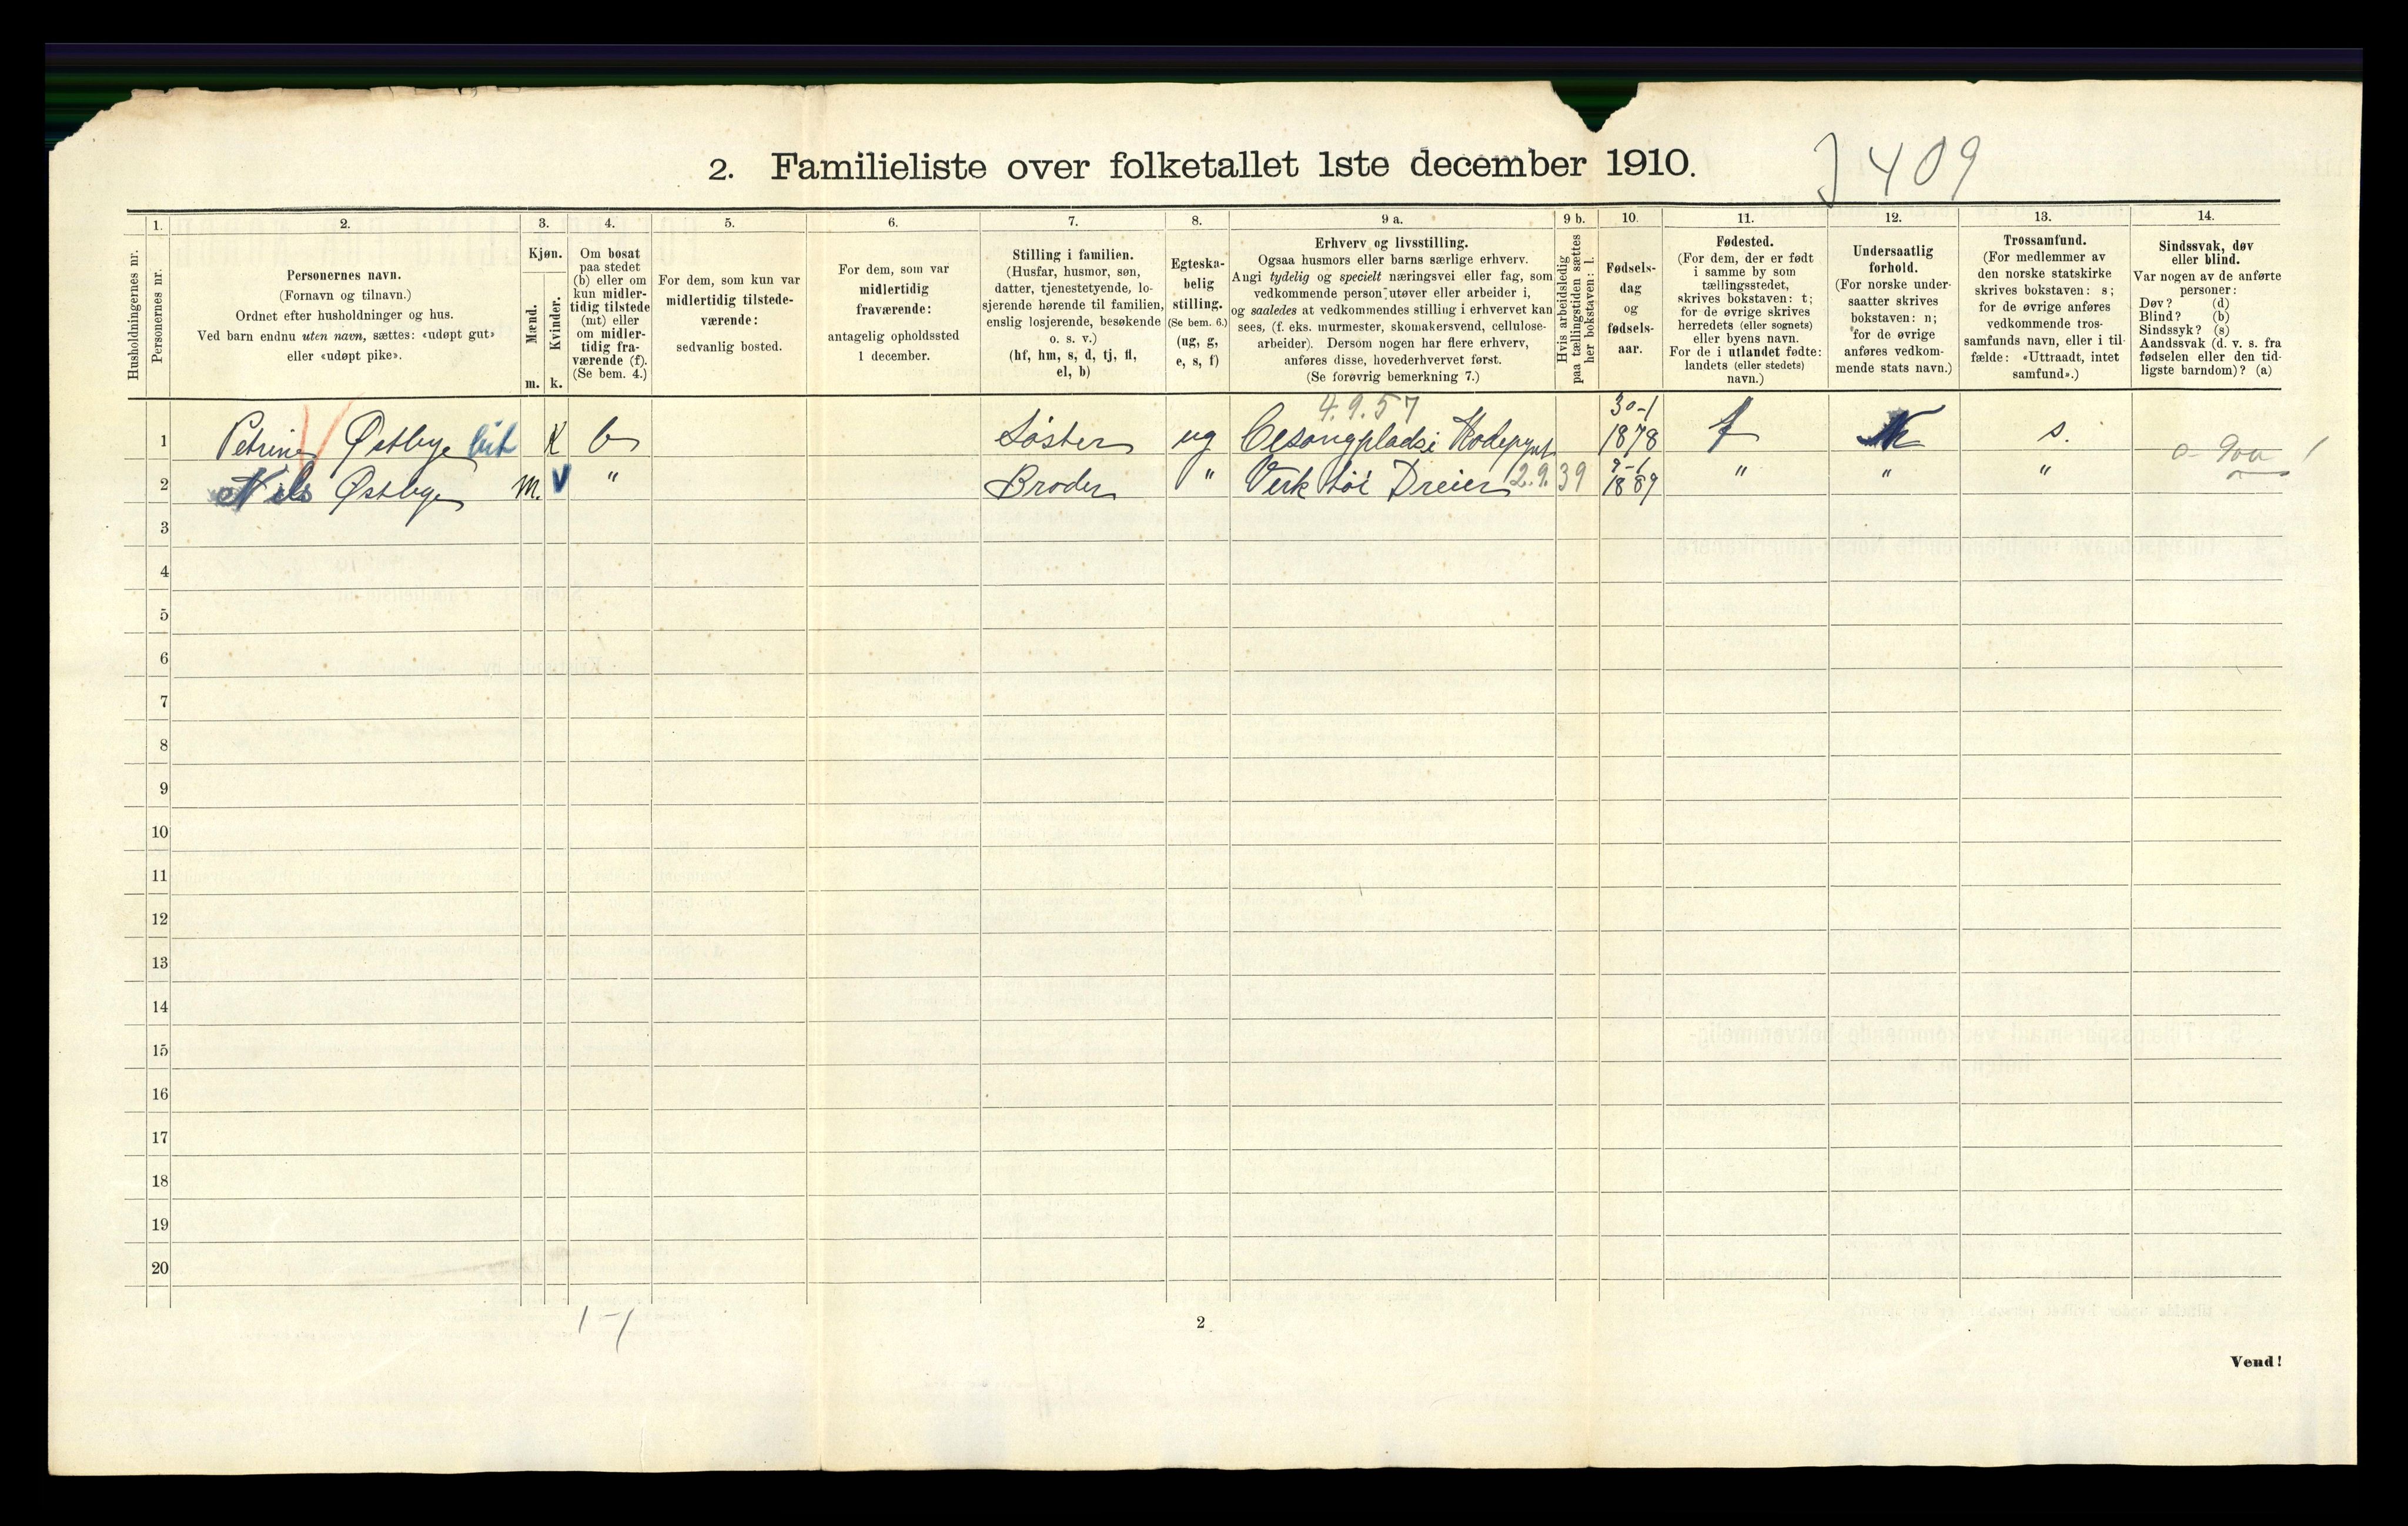 2. Familieliste over folketallet 1ste december 1910.
409
Husholdningernes nr.
1.
Personernes nr.
2.
Personernes navn.
(Fornavn og tilnavn.)
Ordnet efter husholdninger og hus.
Ved barn endnu uten navn, sættes: «udøpt gut»
eller «udøpt pike».
3.
Kjøn.
Mænd.
Kvinder.
m. k.
4.
Om bosat
paa stedet
(b) eller om
kun midler-
tidig tilstede
(mt) eller
om midler-
tidig fra-
værende (f).
(Se bem. 4.)
5.
For dem, som kun var
midlertidig tilstede-
værende:
sedvanlig bosted.
6.
For dem, som var
midlertidig
fraværende:
antagelig opholdssted
1 december.
7.
Stilling i familien.
(Husfar, husmor, søn,
datter, tjenestetyende, lo-
sjerende hørende til familien,
enslig losjerende, besøkende
o. s. v.)
(hf, hm, s, d, tj, fl,
el, b)
8.
Egteska-
belig
stilling.
(Se bem. 6.)
(ug, g,
e, s, f)
9 a.
Erhverv og livsstilling.
Ogsaa husmors eller barns særlige erhverv.
Angi tydelig og specielt næringsvei eller fag, som
vedkommende person utøver eller arbeider i,
og saaledes at vedkommendes stilling i erhvervet kan
sees, (f. eks. murmester, skomakersvend, cellulose-
arbeider). Dersom nogen har flere erhverv,
anføres disse, hovederhvervet først.
(Se forøvrig bemerkning 7.)
9 b.
Hvis arbeidsledig
paa tællingstiden sættes
her bokstaven: l.
10.
Fødsels-
dag
og
fødsels-
aar.
11.
Fødested.
(For dem, der er født
i samme by som
tællingsstedet,
skrives bokstaven: t;
for de øvrige skrives
herredets (eller sognets)
eller byens navn.
For de i utlandet fødte:
landets (eller stedets)
navn.)
12.
Undersaatlig
forhold.
(For norske under-
saatter skrives
bokstaven: n;
for de øvrige
anføres vedkom-
mende stats navn.)
13.
Trossamfund.
(For medlemmer av
den norske statskirke
skrives bokstaven: s;
for de øvrige anføres
vedkommende tros-
samfunds navn, eller i til-
fælde: «Uttraadt, intet
samfund».)
14.
Sindssvak, døv
eller blind.
Var nogen av de anførte
personer:
Døv? (d)
Blind? (b)
Sindssyk? (s)
Aandssvak (d. v. s. fra
fødselen eller den tid-
ligste barndom)? (a)
4.9.57 30-1
1 Petrine Østbye K b Søster ug 1878 s.
2 Nils Østbye m. " Broder " Verktöi Dreier 2.9.39 9-1 1889 " " "
3
4
5
6
7
8
9
10
11
12
13
14
15
16
17
18
19
20
1-1
2
Vend!